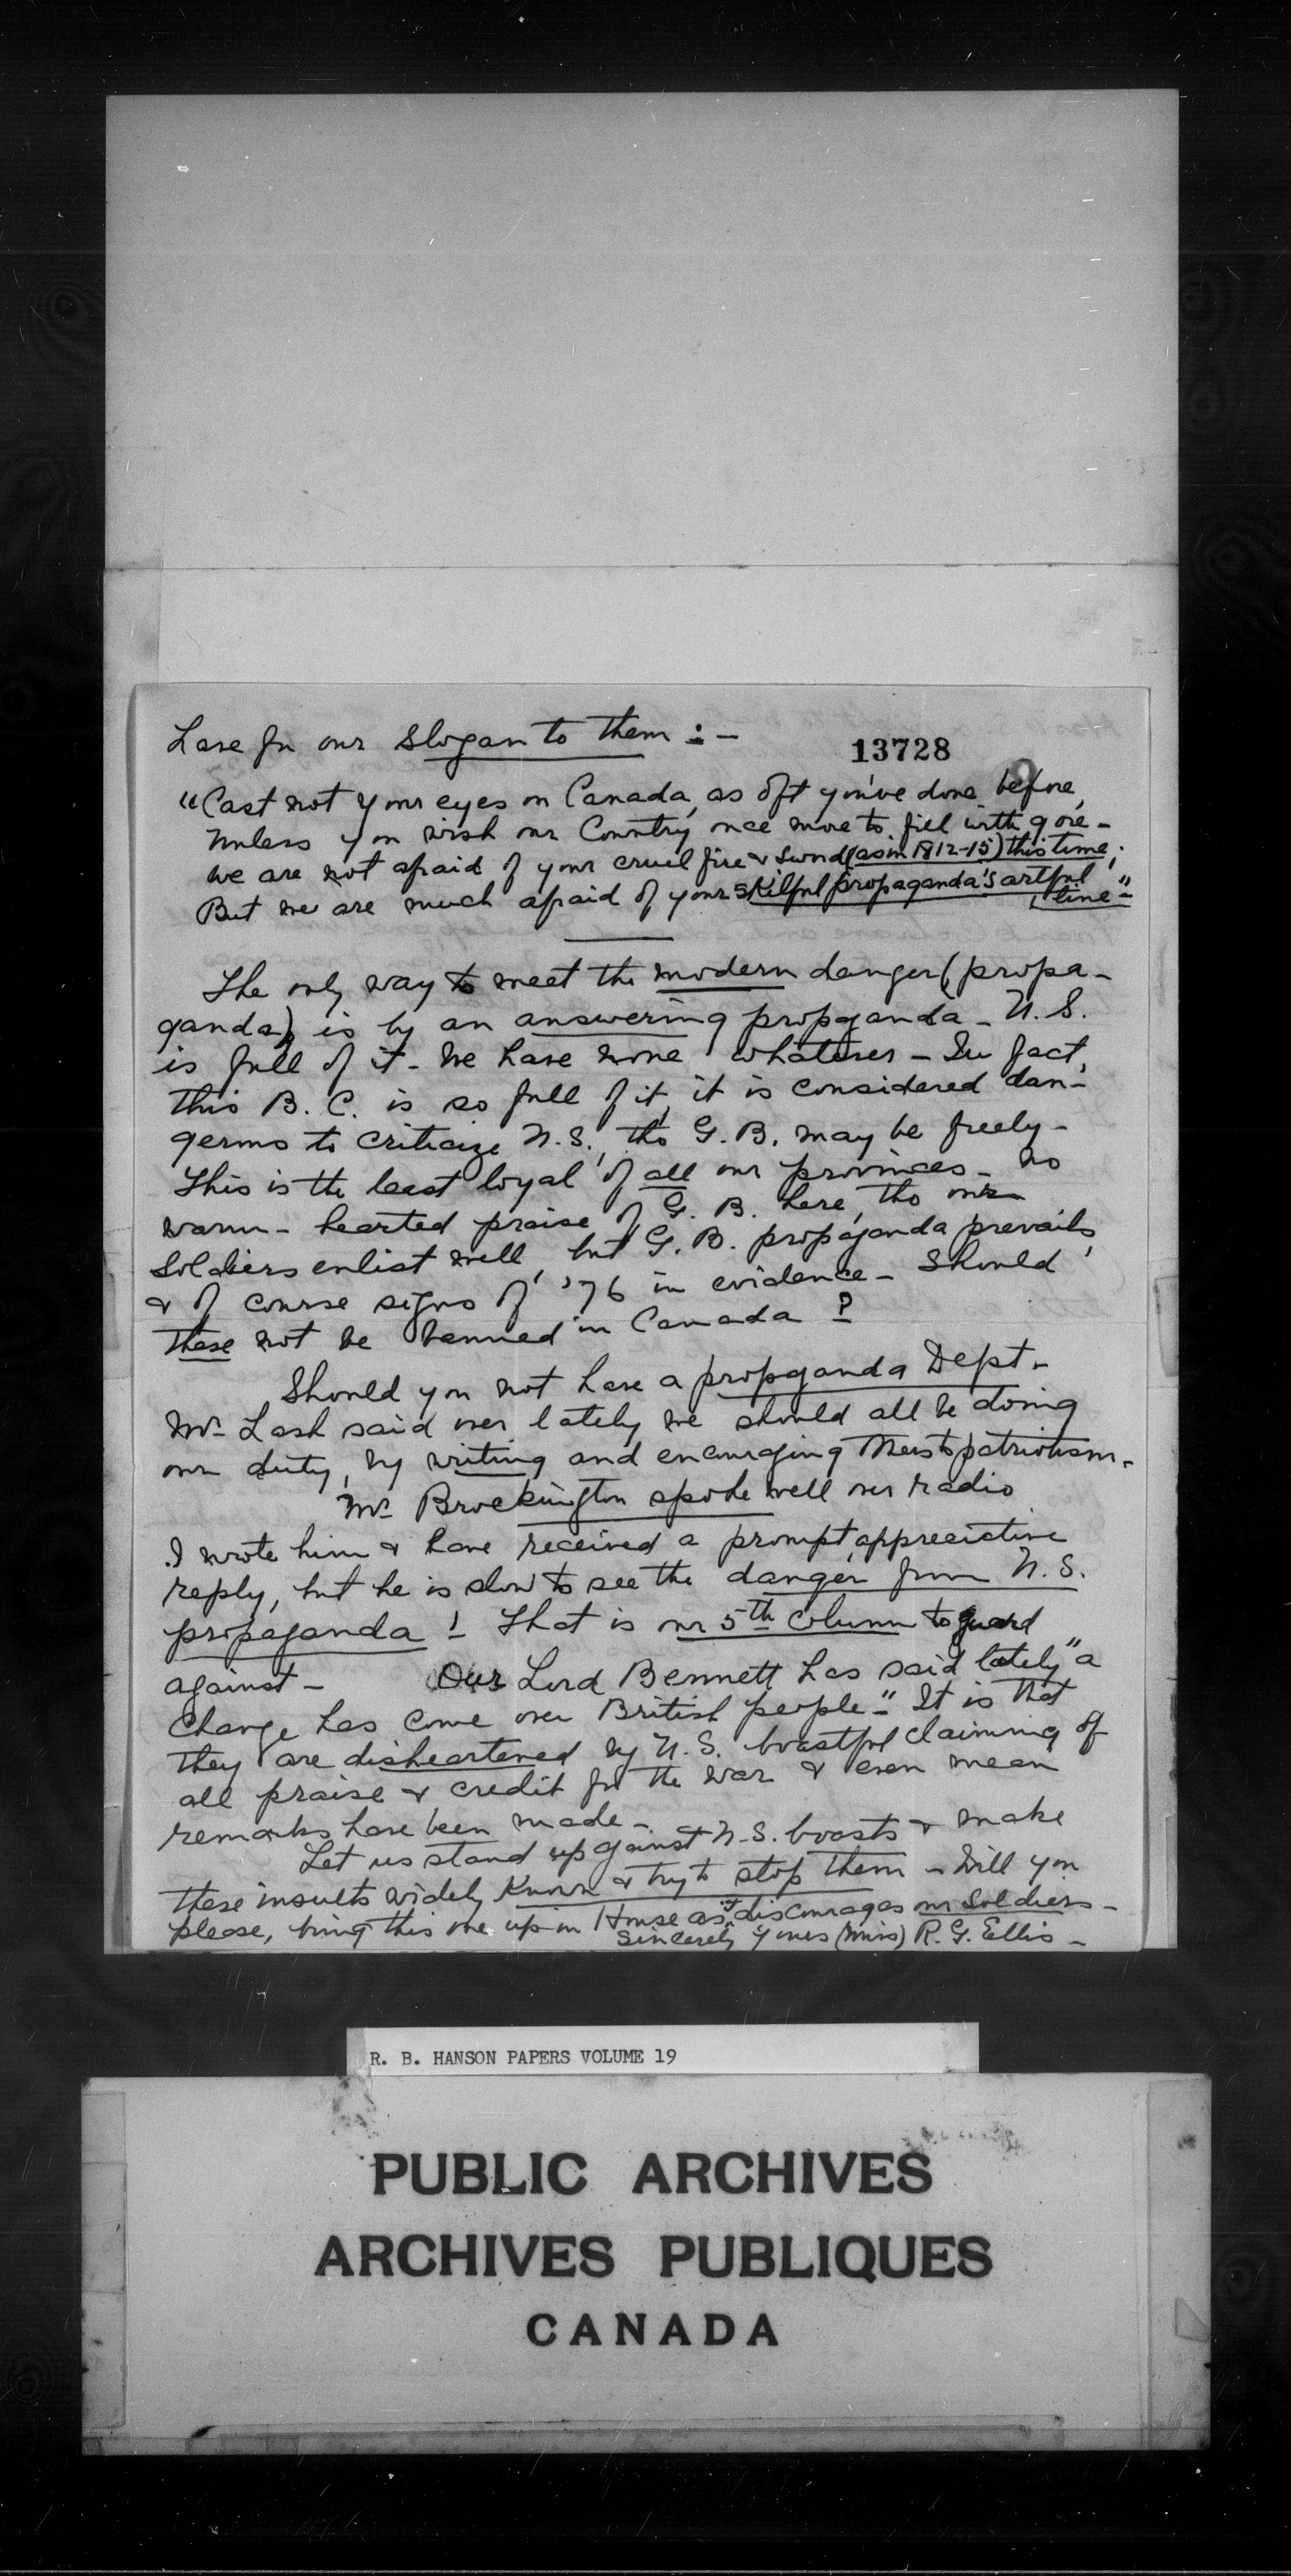 have for our slogan to them :-
13728
"Cast not your eyes on Canada, as oft you've done before,
Unless you wish our Country once more to fill with gore -
We are not afraid of your cruel fire & sword (as in 1812-15) this time;
But we are much afraid of your skilful propaganda's artful
line"-
The only way to meet the modern danger (propa-
ganda) is by an answering propaganda - U.S.
is full of it - We have none whatever - In fact,
this B.C. is so full of it, it is considered dan-
gerous to criticize U.S., tho G.B. may be freely -
This is the least loyal of all our provinces - no
warm-hearted praise of G.B. here, tho our
soldiers enlist well, but G.B. propaganda prevails,
& of course signs of '76 in evidence - Should
these not be banned in Canada ?
Should you not have a propaganda Dept -
Mr Lash said over lately we should all be doing
our duty, by writing and encouraging patriotism -
Mr Brockington spoke well over radio
I wrote him & have received a prompt, appreciative
reply, but he is slow to see the danger from U.S.
propaganda ! That is our 5th column to guard
against - Our Lord Bennett has said lately "a
change has come over British people -" It is that
they are disheartened by U.S. boastful claiming of
all praise & credit for the war & even mean
remarks have been made -
Let us stand up against U.S. boasts & make
these insults widely known & try to stop them - Will you
please, bring this one up in House as it discourages our soldiers -
Sincerely yours (Miss) R. G. Ellis -
R. B. HANSON PAPERS VOLUME 19
PUBLIC ARCHIVES
ARCHIVES PUBLIQUES
CANADA